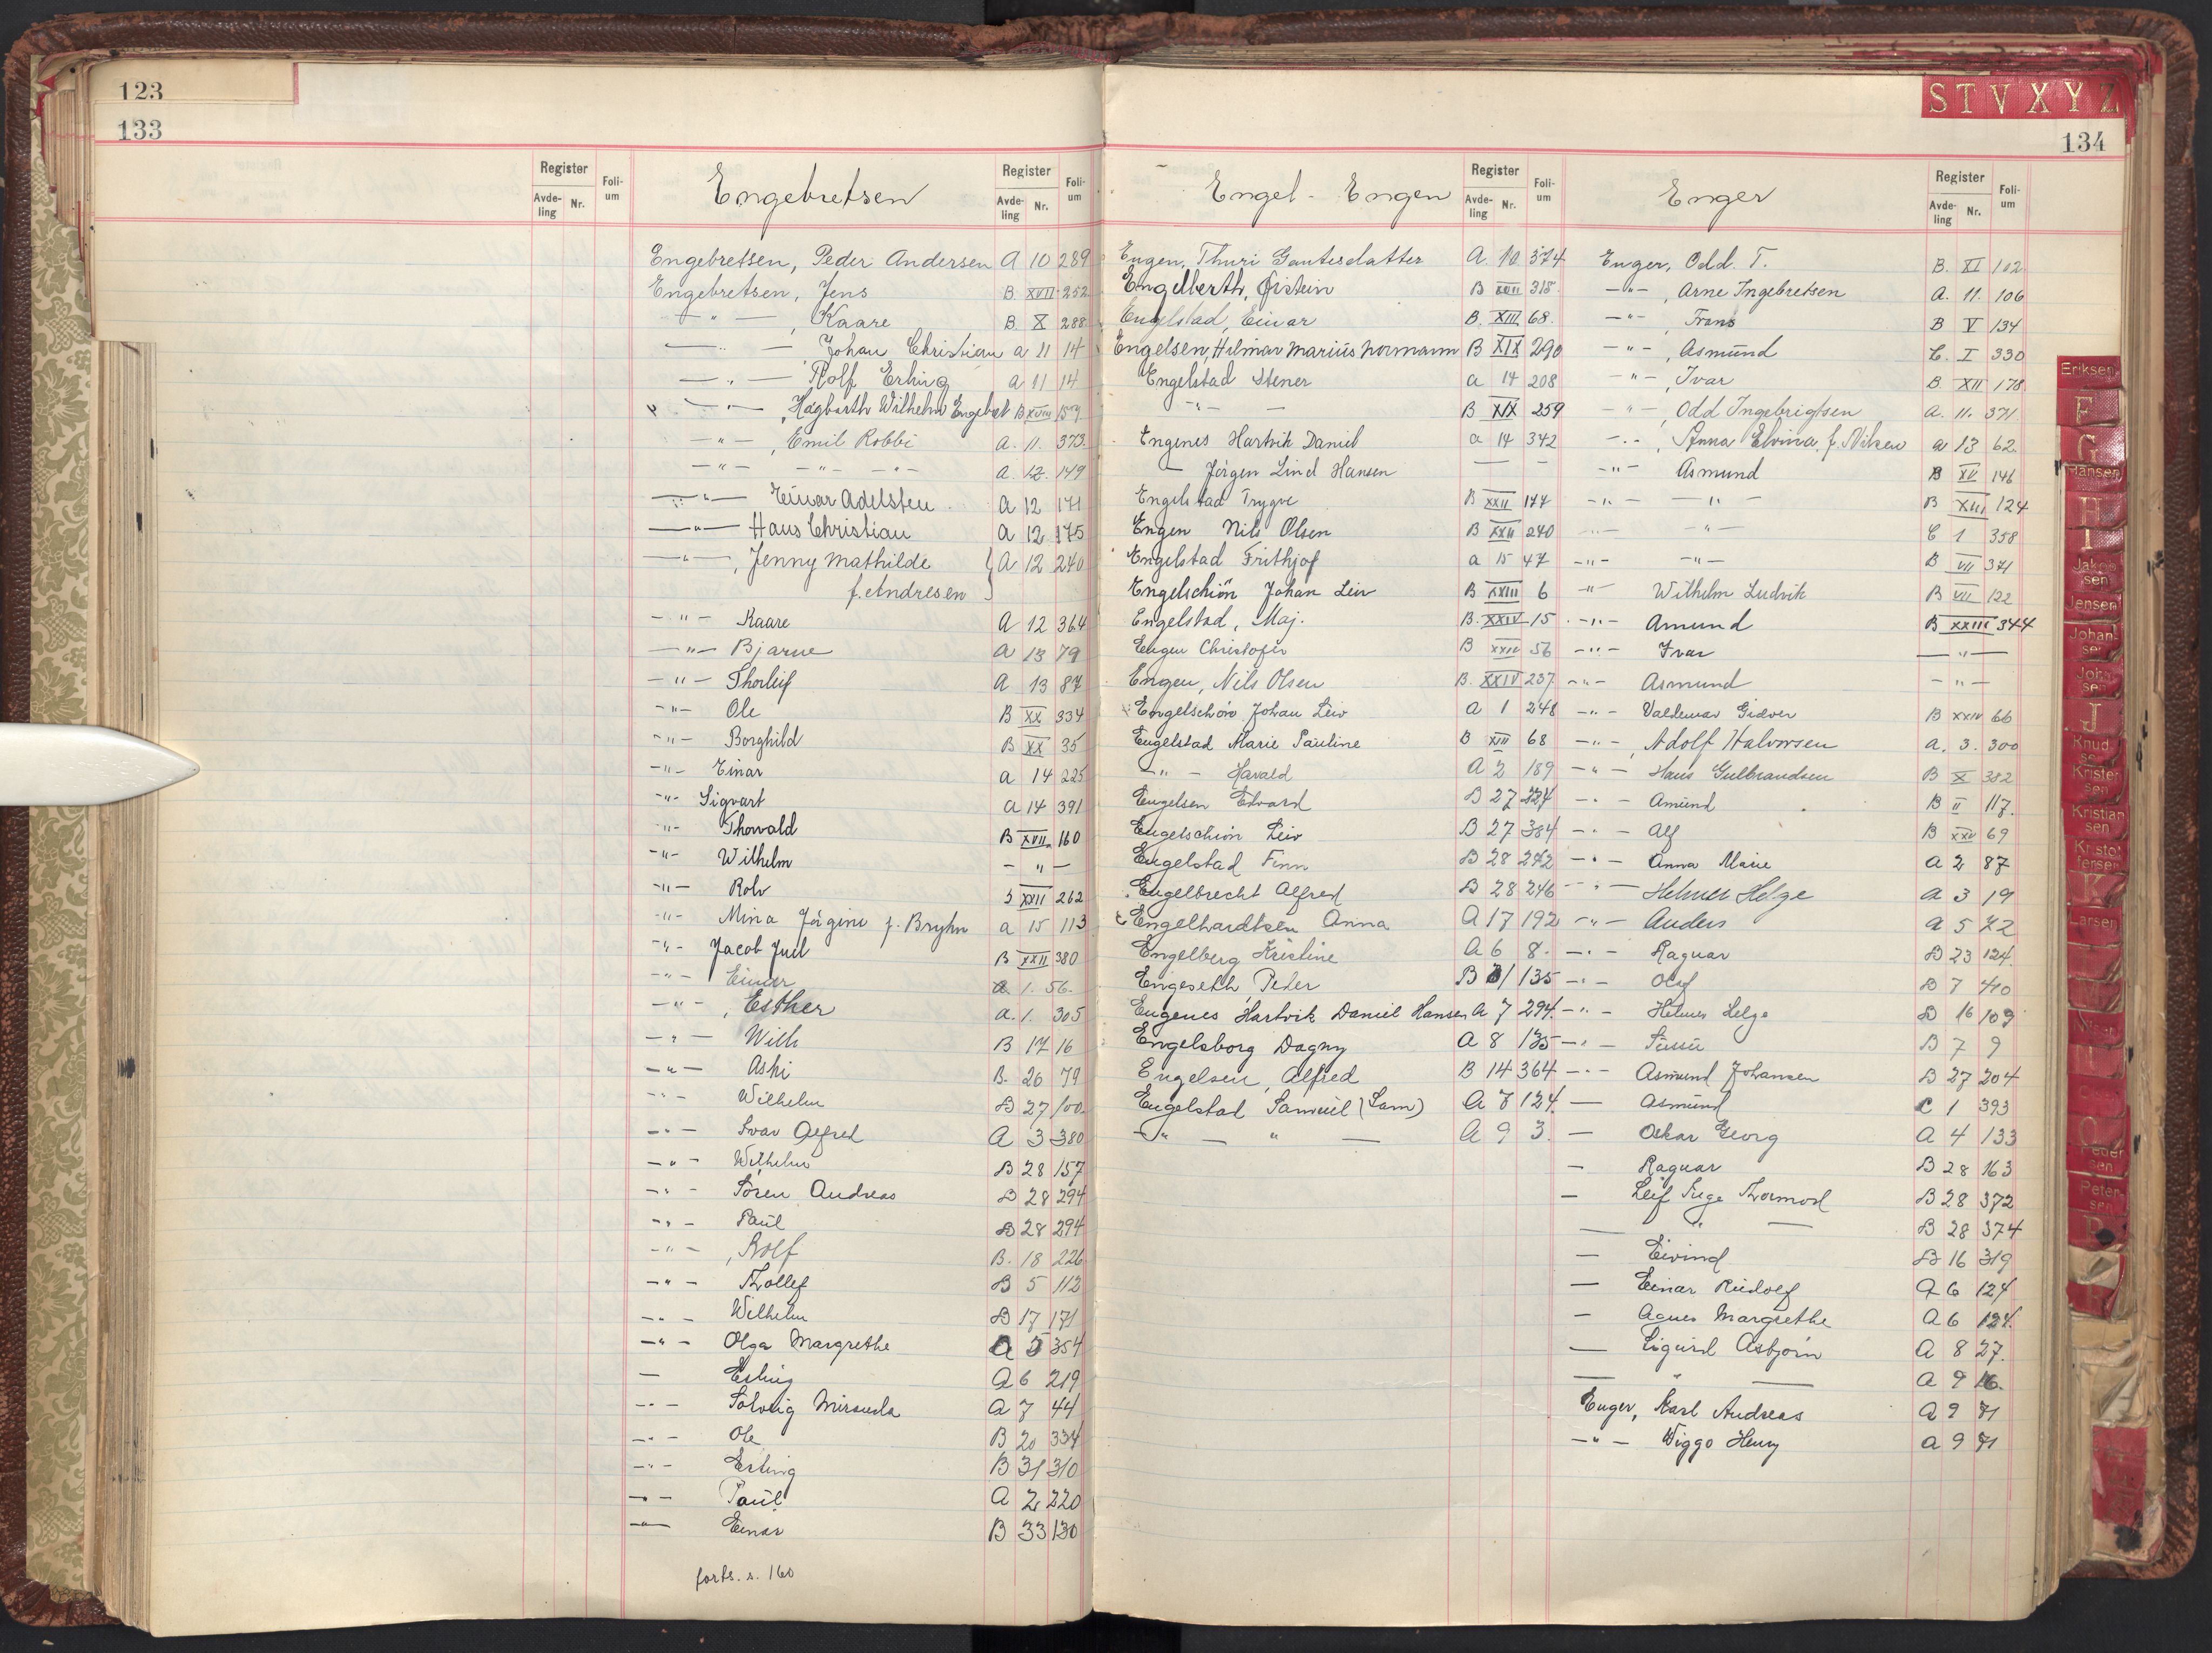 123
133
Register
Avde-ling Nr.
Foli-um
Engebretsen
Register
Avde-ling Nr.
Foli-um
Engebretsen, Peder Andersen A 10 289
Engebretsen, Jens B XVII 252
—"— , Kaare B. X 288
—"— , Johan Christian a 11 14
—"— , Rolf Erling a 11 14
—"— , Hagbarth Wilhelm Engebret B XVIII 157
—"— , Emil Robbi a. 11. 373
—"— —"— —"— a. 12. 149
—"— Einar Adelsten A 12 171
—"— Hans Christian A 12 175
—"— , Jenny Mathilde A 12 240
f. Andresen
—"— Kaare A 12 364
—"— Bjarne A 13 79
—"— Thorleif A 13 87
—"— Ole B XX 334
—"— Borghild B XX 35
—"— Einar a 14 225
—"— Sigvart a 14 391
—"— Thorvald B XVII 160
—"— Wilhelm — " —
—"— Rolv B XXII 262
—"— Mina Jörgine f. Bryhn a 15 113
—"— Jacob Juel B XXII 380
—"— Einar a. 1. 56.
—"— , Esther a. 1. 305
—"— Wilh B 17 16
—"— Aski B. 26 79
—"— Wilhelm B 27 100
—"— Ivar Alfred A 3 380
—"— Wilhelm B 28 157
—"— Sören Andreas B 28 294
—"— Paul B 28 294
—"— , Rolf B. 18 226
—"— Thollef B 5 112
—"— Wilhelm B 17 171
—"— Olga Margrethe A 5 354
— Erling A 6 219
—"— Solveig Miranda A 7 44
—"— Ole B 20 334
—"— Erling B 31 310
—"— Paul A 2 220
—"— Einar B 33 130
forts. s. 160
STVXYZ
134
Engel - Engen
Register
Avde-ling Nr.
Foli-um
Engen, Thuri Gautesdatter A. 10 374
Engelberth, Øistein B XVII 315
Engelstad, Einar B. XIII 68.
Engelsen, Hilmar Marius Normann B XIX 290
Engelstad Stener a 14 208
—"— — B XIX 259
Engenes Hartvik Daniel a 14 342
— Jörgen Lind Hansen — —
Engelstad Trygve B XXII 177
Engen Nils Olsen B XXII 240
Engelstad Frithjof a 15 47
Engelschiön Johan Leiv B XXIII 6
Engelstad, Maj. B. XXIV 15
Engen Christofer B XXIV 56
Engen, Nils Olsen B. XXIV 237
Engelschön Johan Leiv a 1 248
Engelstad Marie Pauline B XIII 68
—"— Harald A 2 189
Engelsen Edvard B 27 324
Engelschiön Leiv B 27 384
Engelstad Finn B 28 242
Engelbrecht Alfred B 28 246
Engelhardtsen Anna A 17 192
Engelberg Kristine A 6 8.
Engeseth Peter B 31 135
Engenes Hartvik Daniel Hansen A 7 294
Engelsborg Dagny A 8 135
Engelsen, Alfred B 14 364
Engelstad Samuel (Sam) A 7 124
—"— — " — A 9 3.
Enger
Register
Avde-ling Nr.
Foli-um
Enger, Odd. T. B. XI 102
—"— , Arne Ingebretsen A. 11. 106
—"— , Frans B V 134
—"— , Asmund C. I 330
—"— , Ivar B XII 178
—"— , Odd Ingebrigtsen A. 11. 371
—"— , Anna Elvina f. Nilsen a 13 62.
—"— Asmund B XV 146
—"— —"— B XIII 124
—"— —"— C 1 358
—"— —"— B VII 371
—"— Wilhelm Ludvik B VII 122
—"— Amund B XXIII 344
—"— Ivar — " —
—"— Asmund — " —
—"— Valdemar Gidver B XXIV 66
—"— , Adolf Halvorsen a. 3. 300
—"— Hans Gulbrandsen B X 382
—"— Amund B II 117.
—"— Alf B XXV 69
—"— Anna Marie a 2 87
—"— Helmer Helge a 3 19
—"— Anders a 5 72
—"— Ragnar B 23 124.
—"— Olaf B 7 410
—"— Helmer Helge B 16 109
—"— B 7 9
—"— Asmund Johansen B 27 204
— Asmund C 1 393
— Oskar Georg A 4 133
— Ragnar B 28 163
— Leif Inge Thormod B 28 372
— " — B 28 374
— Eivind B 16 319
— Einar Rudolf A 6 124
— Agnes Margrethe A 6 124.
— Sigurd Asbjörn A 8 27.
— " — A 9 16.
Enger, Karl Andreas A 9 71
—"— Wiggo Henry A 9 71
Eriksen
F
G
Hansen
H
I
Jakobsen
Jensen
Johansen
Johnsen
J
Knudsen
Kristensen
Kristiansen
Kristoffersen
K
Larsen
Nilsen
O
Pedersen
Petersen
P